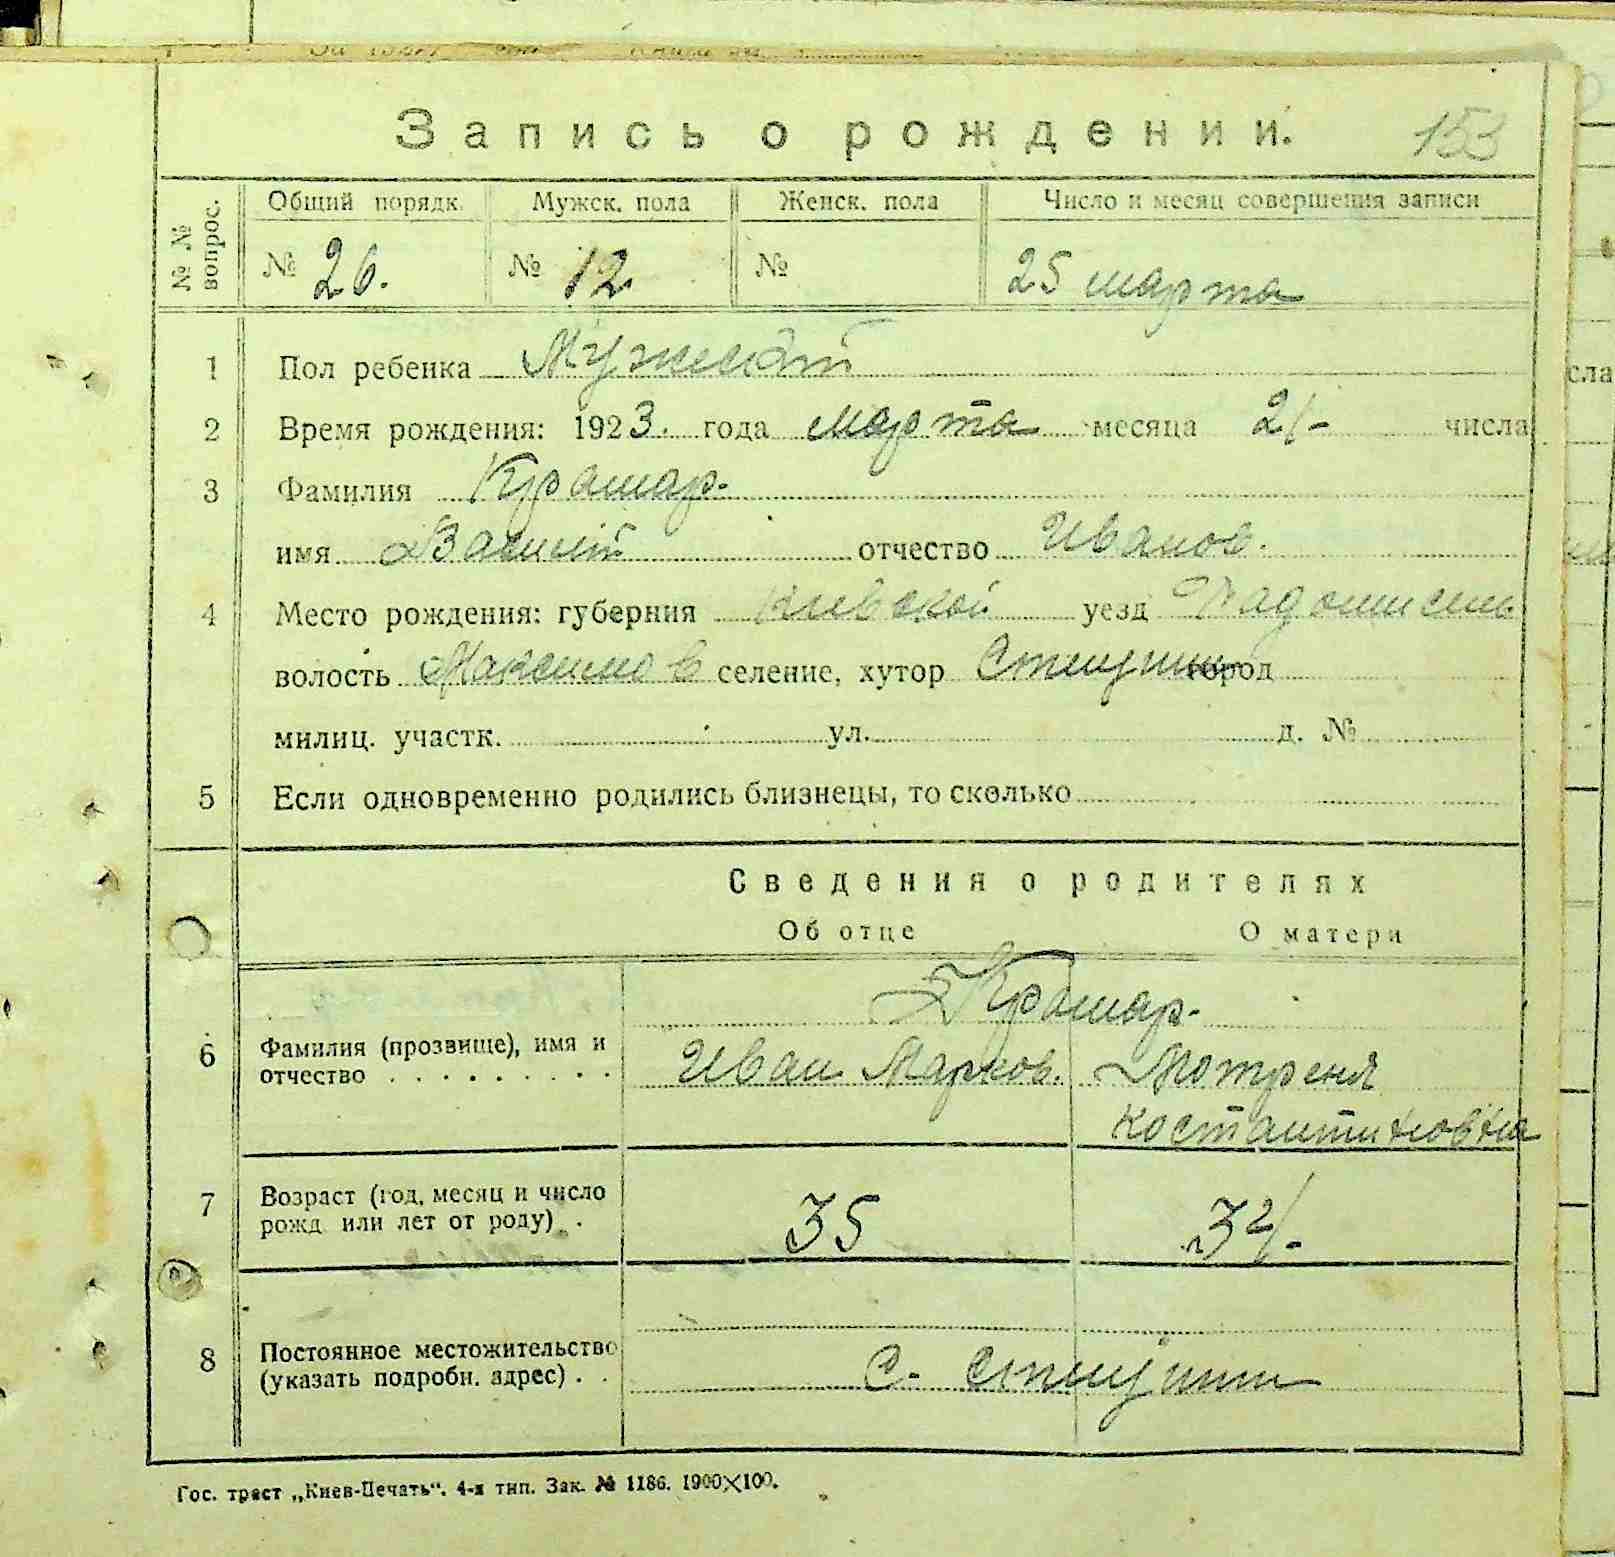 Запись о рождении. 153
№ № вопрос.
Общий порядк. Мужск. пола Женск. пола Число и месяц совершения записи
№ 26. № 12 № 25 марта
1 Пол ребенка Мужской
2 Время рождения: 1923. года марта месяца 21- числа
3 Фамилия Крамар.
имя Василий отчество Иванов.
4 Место рождения: губерния Киевской уезд Радомисль
волость Максимов селение, хутор город
милиц. участк. ул. д. №
5 Если одновременно родились близнецы, то сколько
Сведения о родителях
Об отце О матери
Крамар.
6 Фамилия (прозвище), имя и отчество . . . . . . . . .
Иван Марков. Мотреня
Костантиновна
7 Возраст (год, месяц и число рожд. или лет от роду) . .
35
8 Постоянное местожительство (указать подробн. адрес) . .
С.
Гос. трест „Киев-Печать“. 4-я тип. Зак. № 1186. 1900×100.